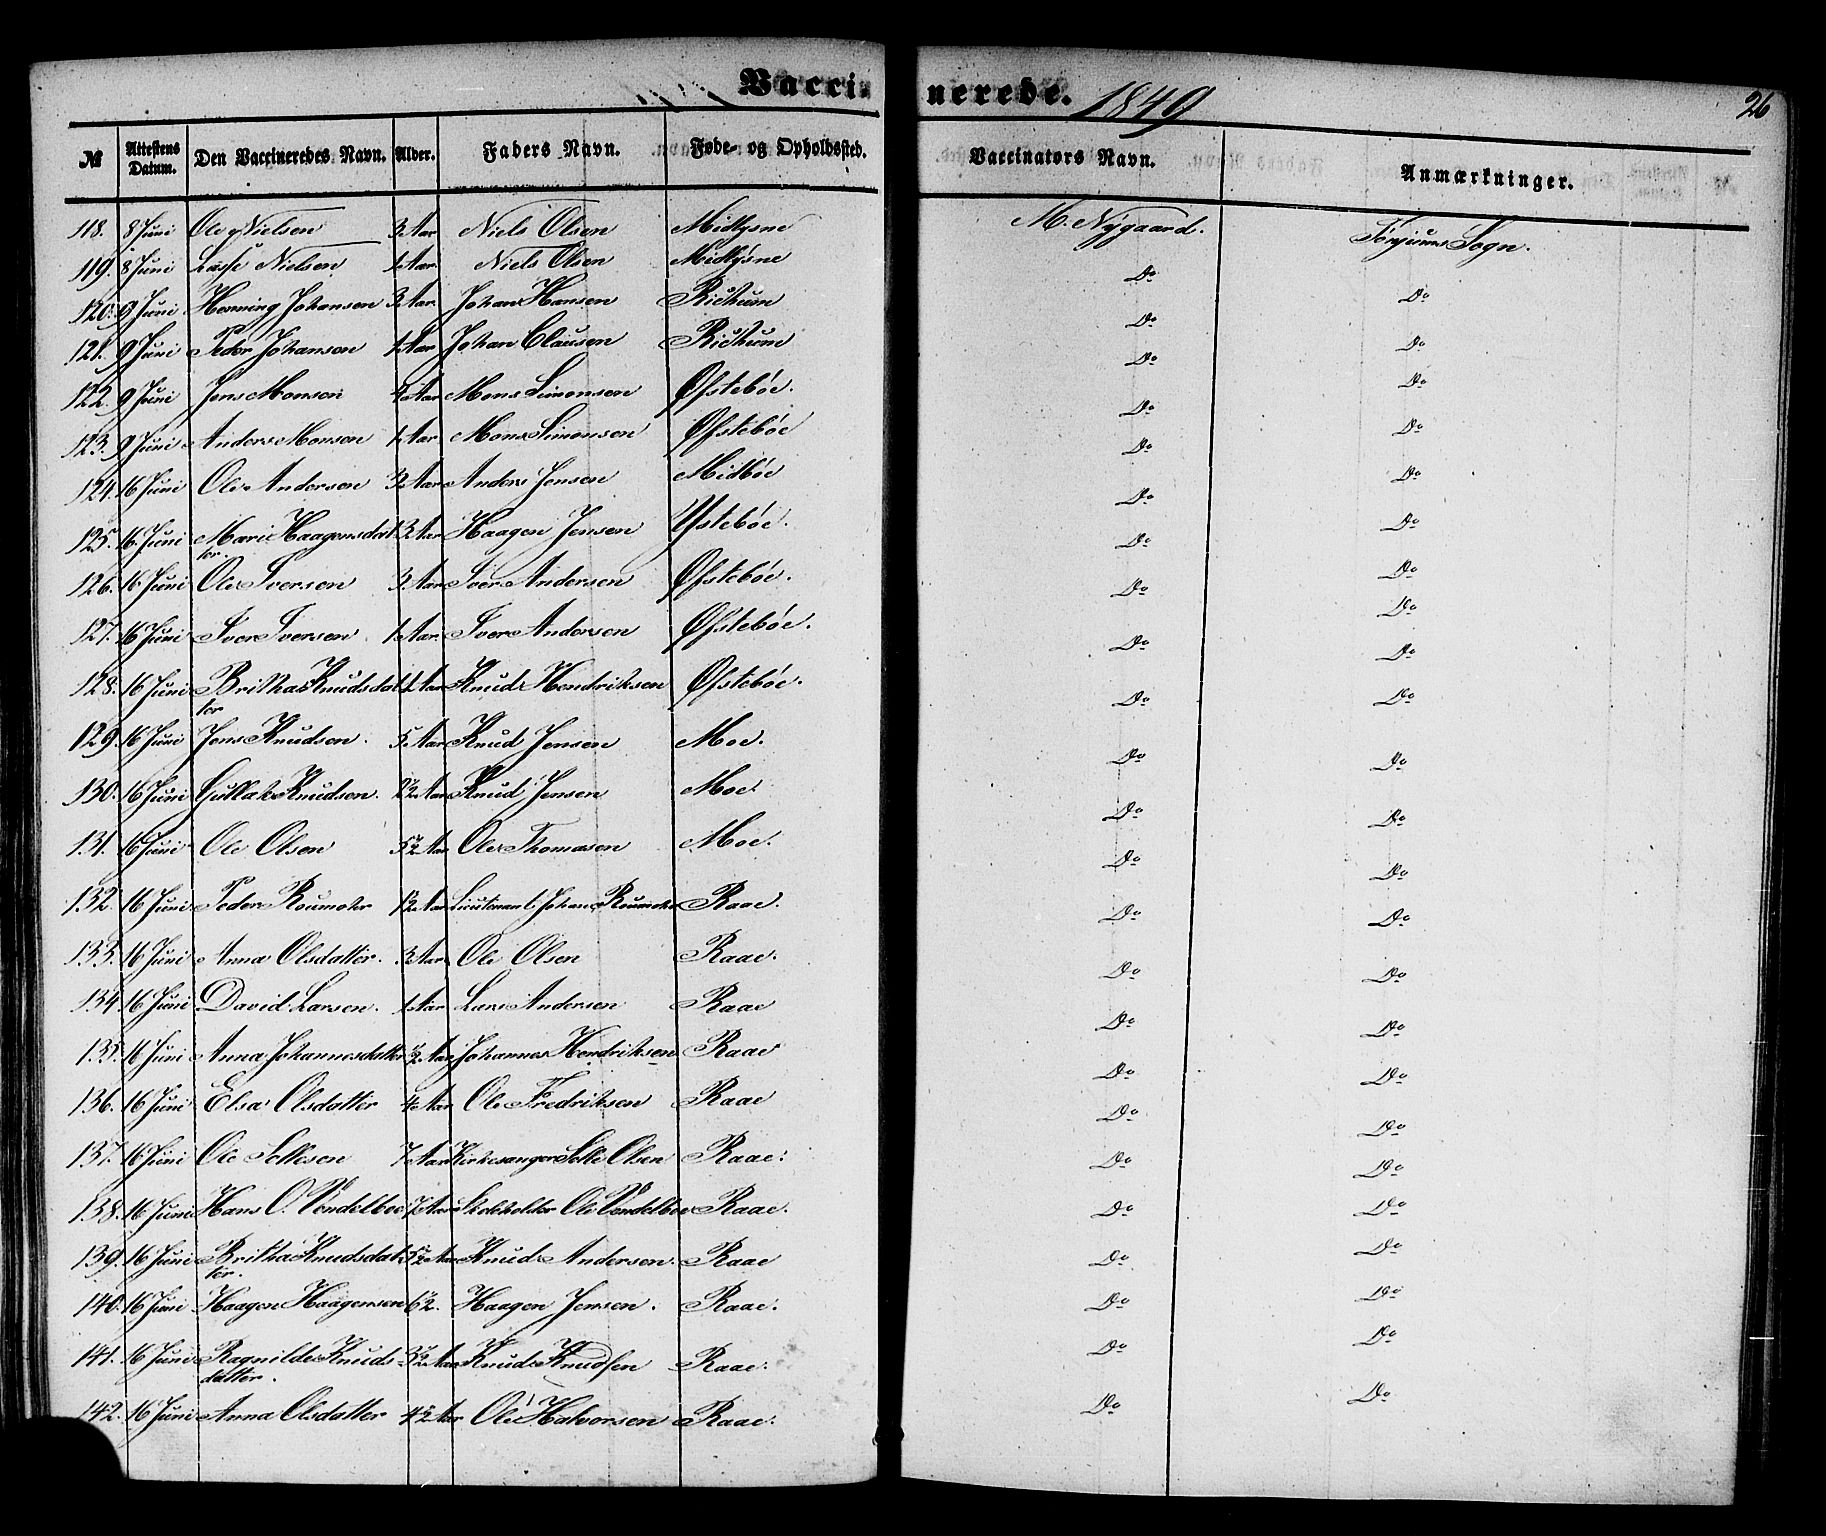 Vaccinerede. 1849
26
№ Attestens Datum. Den Vaccineredes Navn. Alder. Faders Navn. Føde- og Opholdssted. Vaccinators Navn. Anmærkninger.
118. 8 Juni Ole Nielsen 3 Aar Niels Olsen Midlysne M. Nygaard. Tønjums Sogn.
119. 8 Juni Lasse Nielsen 1 Aar Niels Olsen Midlysne Do Do
120. 9 Juni Henning Johansen 3 Aar Johan Hansen Richum Do Do
121. 9 Juni Peder Johansen 1 Aar Johan Clausen Richum Do Do
122. 9 Juni Jens Monsen 4 Aar Mons Simonsen Øfstebøe. Do Do
123. 9 Juni Anders Monsen 1 Aar Mons Simonsen Øfstebøe Do Do
124. 16 Juni Ole Andersen 3 Aar Anders Jensen Midbøe Do Do
125. 16 Juni Mari Haagensdatter. 3 Aar Haagen Jensen Ystebøe. Do Do
126. 16 Juni Ole Iversen 3 Aar Iver Andersen Øfstebøe. Do Do
127. 16 Juni Iver Iversen 1 Aar Iver Andersen Øfstebøe. Do Do
128. 16 Juni Britha Knudsdatter 1 Aar Knud Hendriksen Øfstebøe. Do Do
129. 16 Juni Jens Knudsen. 5 Aar Knud Jensen Moe. Do Do
130. 16 Juni Gullak Knudsen. 2½ Aar Knud Jensen Moe. Do Do
131. 16 Juni Ole Olsen 5½ Aar Ole Thomasen Moe. Do Do
132. 16 Juni Peder Roumohr 1½ Aar Lieutenant Johan Roumohr Raae. Do Do
133. 16 Juni Anna Olsdatter. 3 Aar Ole Olsen Raae. Do Do
134. 16 Juni David Larsen. 1 Aar Lars Andersen Raae Do Do
135. 16 Juni Anna Johannesdatter ½ Aar Johannes Hendriksen Raae Do Do
136. 16 Juni Elsa Olsdatter 4 Aar Ole Fredriksen Raae Do Do
137. 16 Juni Ole Solfesen 7 Aar Kirkesanger Solfe Olsen Raae. Do Do
138. 16 Juni Hans O. Vendelboe 7 Aar Skoleholder Ole Vendelboe Raae. Do Do
139. 16 Juni Britha Knudsdatter. 5½ Aar Knud Andersen. Raae Do Do
140. 16 Juni Haagen Haagensen 6½. Haagen Jensen. Raae. Do Do
141. 16 Juni Ragnilde Knudsdatter. 3½ Aar Knud Knudsen Raae. Do Do
142. 16 Juni Anna Olsdatter 4½ Aar Ole Halvorsen Raae. Do Do